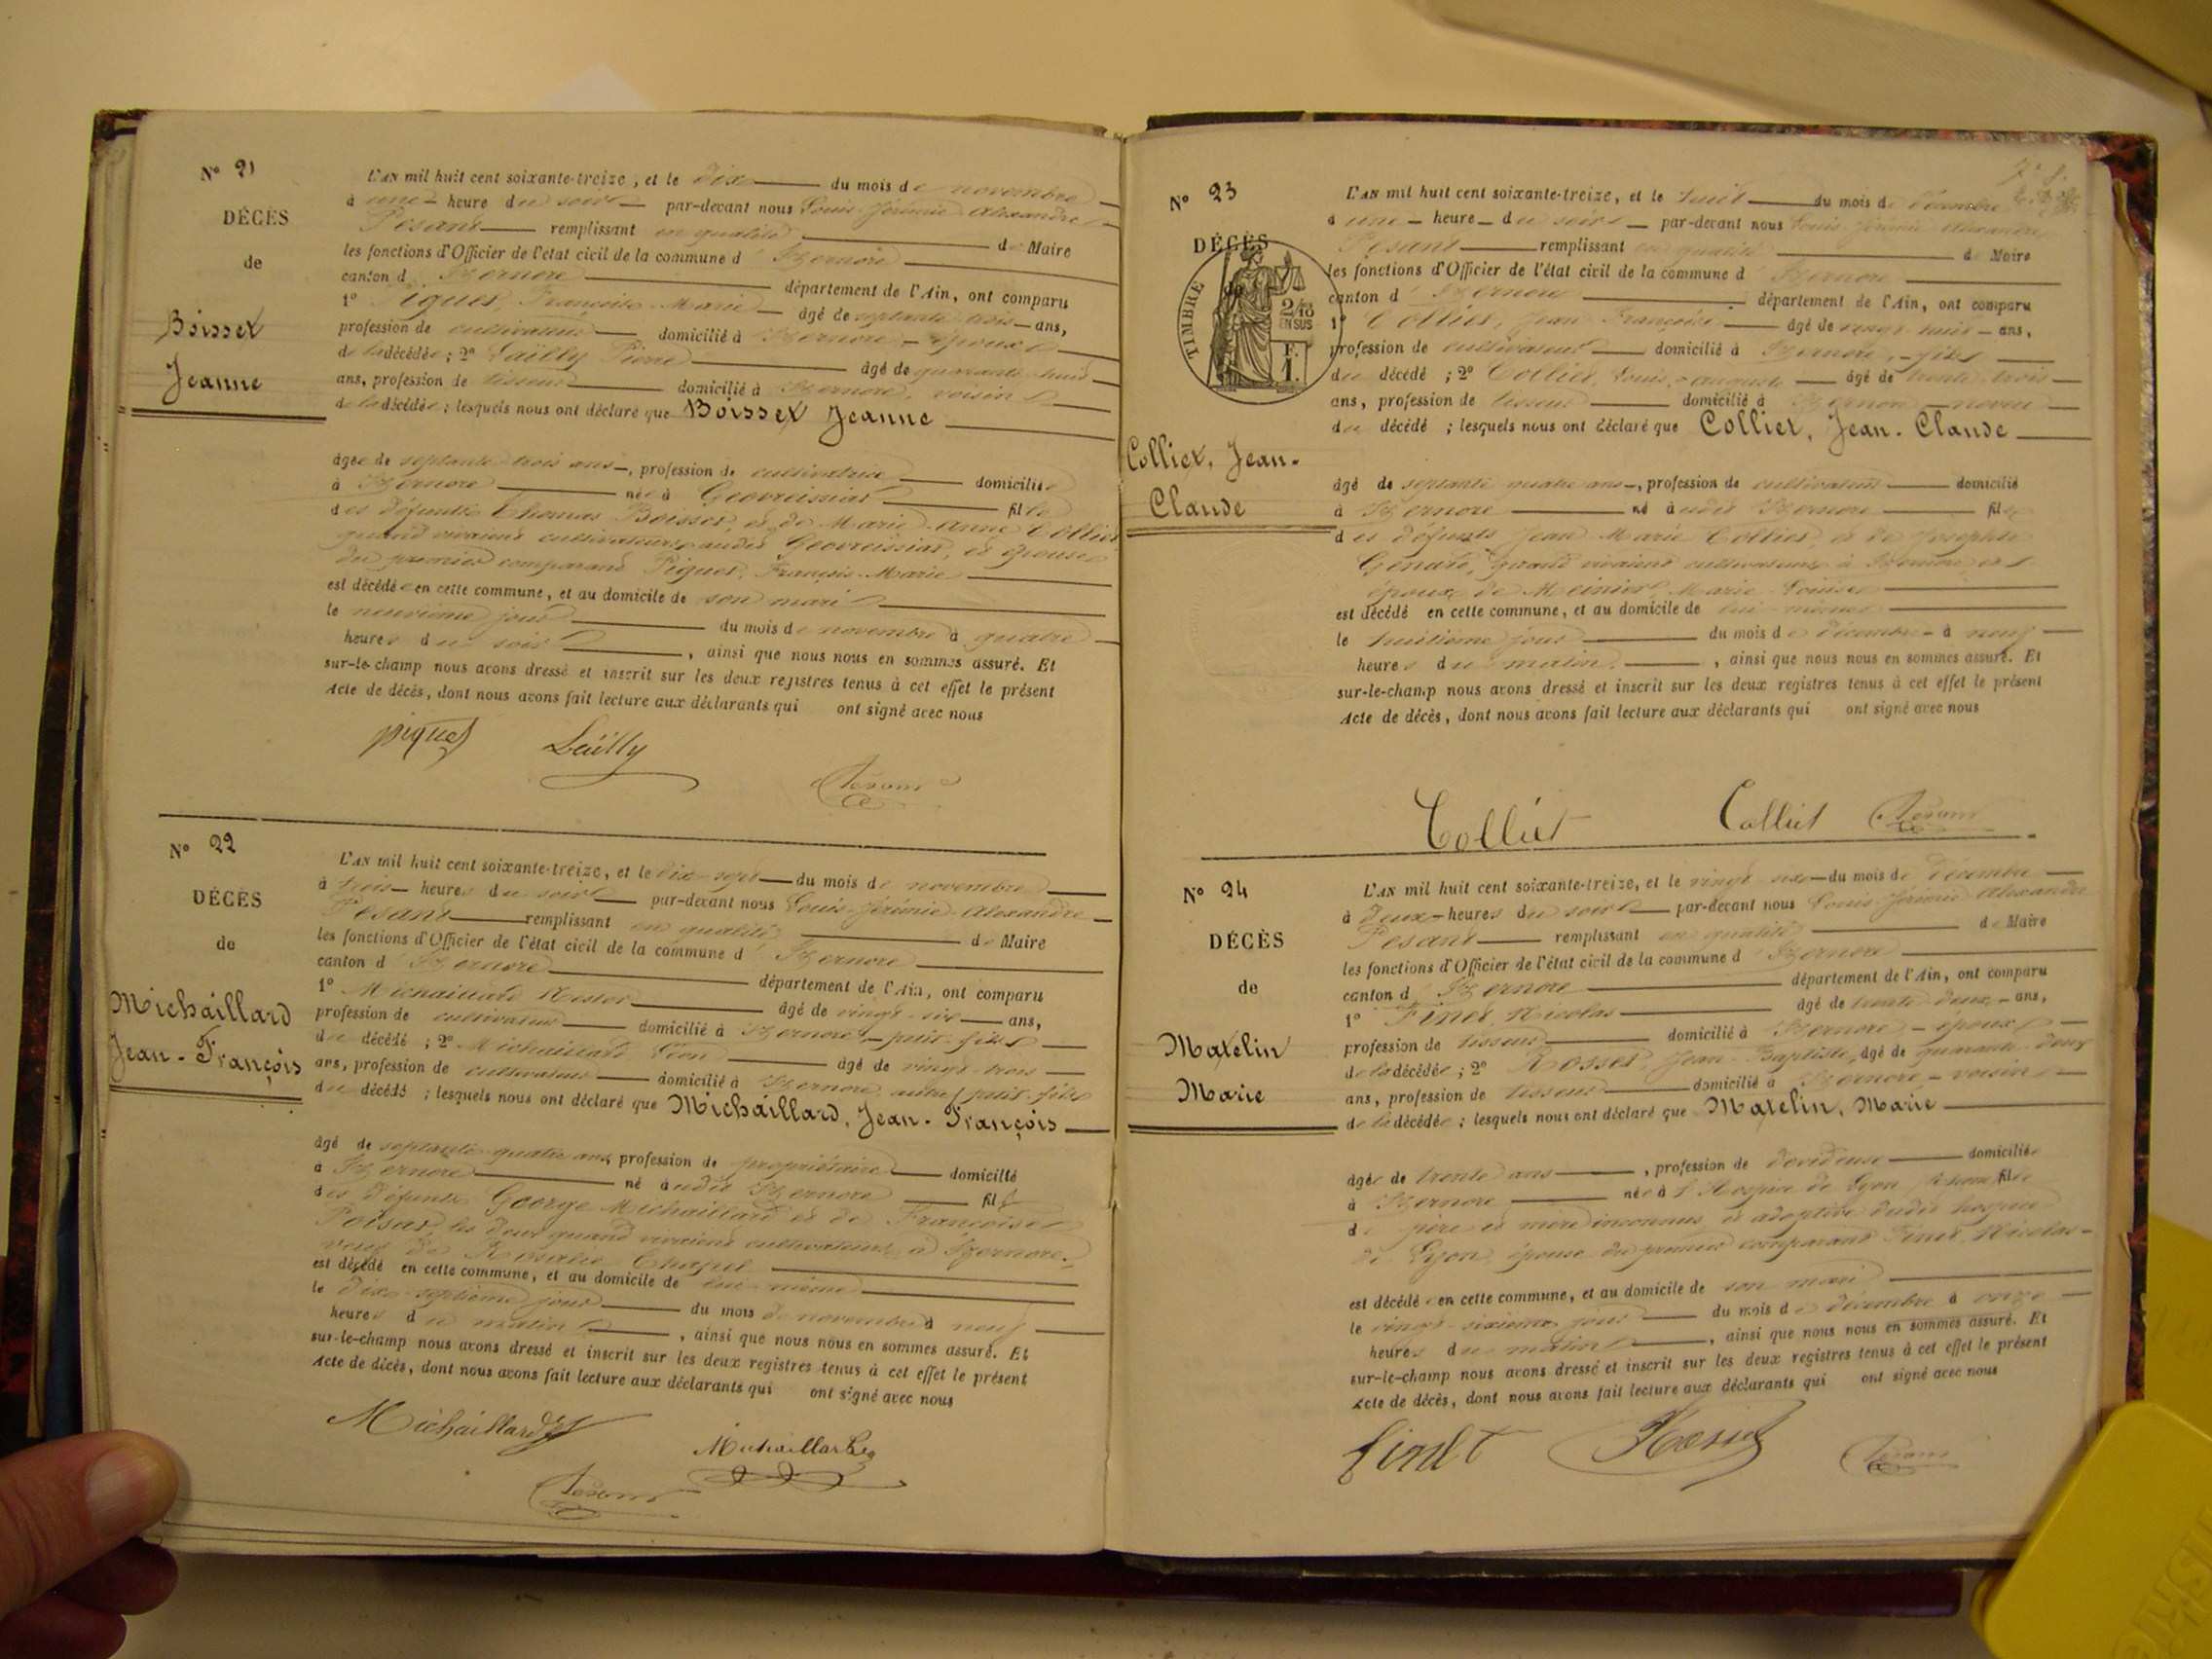 N° 21
DÉCÈS
de
Boisset
Jeanne
L'AN mil huit cent soixante-treize, et le dix du mois de novembre
à une heure du soir par-devant nous Louis Jérémie Alexandre
Pesant remplissant en qualité de Maire
les fonctions d'Officier de l'état civil de la commune d'Izernore
canton d'Izernore département de l'Ain, ont comparu
1° Piquet, François-Marie âgé de septante trois ans,
profession de cultivateur domicilié à Izernore, époux
de la décédée ; 2° Laïlly Pierre âgé de quarante huit
ans, profession de tisseur domicilié à Izernore, voisin
de la décédée ; lesquels nous ont déclaré que Boisset Jeanne
âgée de septante trois ans, profession de cultivatrice domiciliée
à Izernore née à Geovreissiat fille
des défunts Thomas Boisset, et de Marie-Anne Collier
quand vivaient cultivateurs audit Geovreissiat, et épouse
du premier comparant Piquet, François-Marie
est décédée en cette commune, et au domicile de son mari
le neuvième jour du mois de novembre à quatre
heures du soir, ainsi que nous nous en sommes assuré. Et
sur-le-champ nous avons dressé et inscrit sur les deux registres tenus à cet effet le présent
Acte de décès, dont nous avons fait lecture aux déclarants qui ont signé avec nous
piquet Laïlly
Pesant
N° 22
DÉCÈS
de
Michaillard
Jean-François
L'AN mil huit cent soixante-treize, et le dix-sept du mois de novembre
à trois heures du soir par-devant nous Louis-Jérémie-Alexandre
Pesant remplissant en qualité de Maire
les fonctions d'Officier de l'état civil de la commune d'Izernore
canton d'Izernore département de l'Ain, ont comparu
1° Michaillard Nestor âgé de vingt-six ans,
profession de cultivateur domicilié à Izernore, petit-fils
du décédé ; 2° Michaillard Léon âgé de vingt-trois
ans, profession de cultivateur domicilié à Izernore, autre petit-fils
du décédé ; lesquels nous ont déclaré que Michaillard, Jean-François
âgé de septante quatre ans, profession de propriétaire domicilié
à Izernore né audit Izernore fils
des défunts George Michaillard et de Françoise
Poisat, les deux quand vivaient cultivateurs à Izernore.
veuf de Rosalie Chapel
est décédé en cette commune, et au domicile de lui-même
le dix-septième jour du mois de novembre à neuf
heures du matin, ainsi que nous nous en sommes assuré. Et
sur-le-champ nous avons dressé et inscrit sur les deux registres tenus à cet effet le présent
Acte de décès, dont nous avons fait lecture aux déclarants qui ont signé avec nous
Michaillard
Michaillard
Pesant
N° 23
DÉCÈS
de
TIMBRE
2/10
EN SUS
F.
1.
Collier, Jean-
Claude
L'AN mil huit cent soixante-treize, et le huit du mois de décembre
à une heure du soir par-devant nous Louis Jérémie Alexandre
Pesant remplissant en qualité de Maire
les fonctions d'Officier de l'état civil de la commune d'Izernore
canton d'Izernore département de l'Ain, ont comparu
1° Collier, Jean François âgé de vingt huit ans,
profession de cultivateur domicilié à Izernore, fils
du décédé ; 2° Collier, Louis-Auguste âgé de trente trois
ans, profession de tisseur domicilié à Izernore neveu
du décédé ; lesquels nous ont déclaré que Collier, Jean-Claude
âgé de septante quatre ans, profession de cultivateur domicilié
à Izernore né audit Izernore fils
des défunts Jean Marie Collier, et de Josephte
quand vivaient cultivateurs à Izernore et
époux de Meinier Marie-Louise
est décédé en cette commune, et au domicile de lui-même
le huitième jour du mois de décembre à neuf
heures du matin, ainsi que nous nous en sommes assuré. Et
sur-le-champ nous avons dressé et inscrit sur les deux registres tenus à cet effet le présent
Acte de décès, dont nous avons fait lecture aux déclarants qui ont signé avec nous
Colliét Colliét Pesant
N° 24
DÉCÈS
de
Matelin
Marie
L'AN mil huit cent soixante-treize, et le vingt six du mois de décembre
à deux heures du soir par-devant nous Louis-Jérémie Alexandre
Pesant remplissant en qualité de Maire
les fonctions d'Officier de l'état civil de la commune d'Izernore
canton d'Izernore département de l'Ain, ont comparu
1° Finet, Nicolas âgé de trente-deux ans,
profession de tisseur domicilié à Izernore, époux
de la décédée ; 2° Rosset, Jean-Baptiste, âgé de quarante-deux
ans, profession de tisseur domicilié à Izernore, voisin
de la décédée ; lesquels nous ont déclaré que Matelin, Marie
âgée de trente ans, profession de dévideuse domiciliée
à Izernore née à l'Hospice de Lyon fille
de père et mère inconnus et adoptive dudit hospice
de Lyon, épouse du premier comparant Finet, Nicolas
est décédée en cette commune, et au domicile de son mari
le vingt-sixième jour du mois de décembre à onze
heures du matin, ainsi que nous nous en sommes assuré. Et
sur-le-champ nous avons dressé et inscrit sur les deux registres tenus à cet effet le présent
Acte de décès, dont nous avons fait lecture aux déclarants qui ont signé avec nous
finet Rosset Pesant